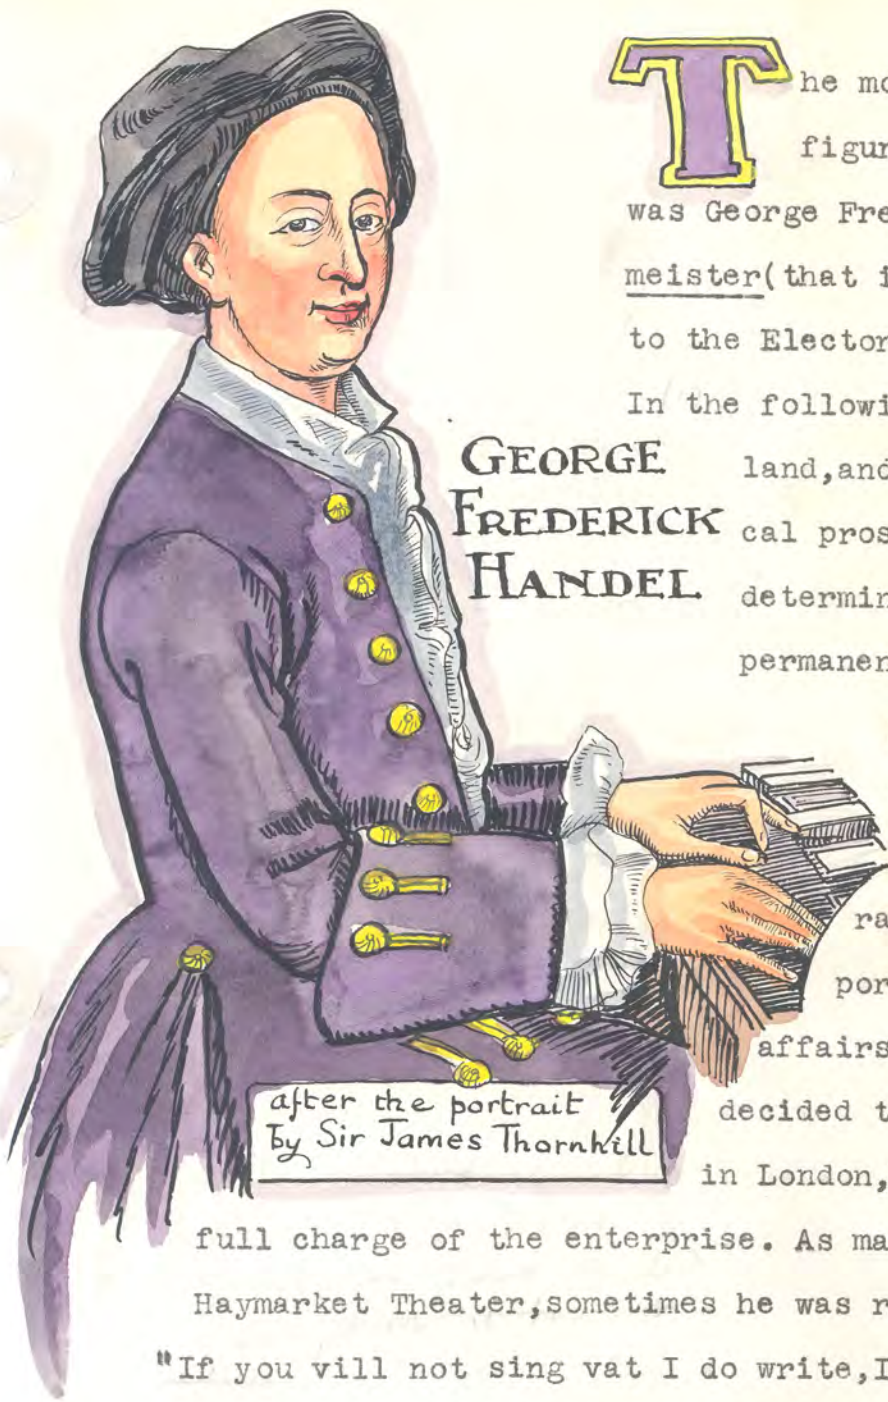 The mo
figur
was George Fre
meister(that i
to the Elector
In the followi
land,and
cal pros
determin
permanen
GEORGE
FREDERICK
HANDEL
ra
por
affairs
decided t
in London,
after the portrait
by Sir James Thornhill
full charge of the enterprise. As ma
Haymarket Theater,sometimes he was r
"If you vill not sing vat I do write,I